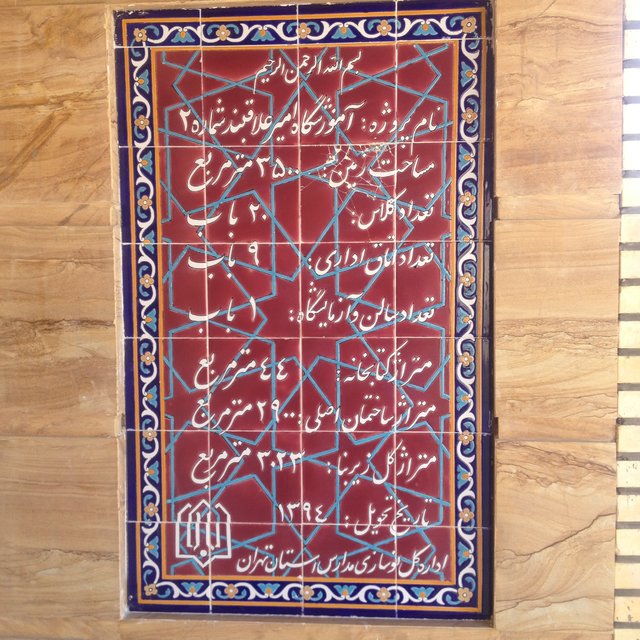 بسم الله الرحمن الرحیم
نام پروژه: آموزشگاه امیر علاقبند شماره ۲
مساحت زمین: ۳۵۰۰ متر مربع
تعداد کلاس: ۲۰ باب
تعداد اتاق اداری: ۹ باب
تعداد سالن و آزمایشگاه: ۱ باب
متراژ کتابخانه: ۴۴ متر مربع
متراژ ساختمان اصلی: ۲۹۰۰ متر مربع
متراژ کل زیربنا: ۳۰۲۳ متر مربع
تاریخ تحویل: ۱۳۹۴
اداره کل نوسازی مدارس استان تهران